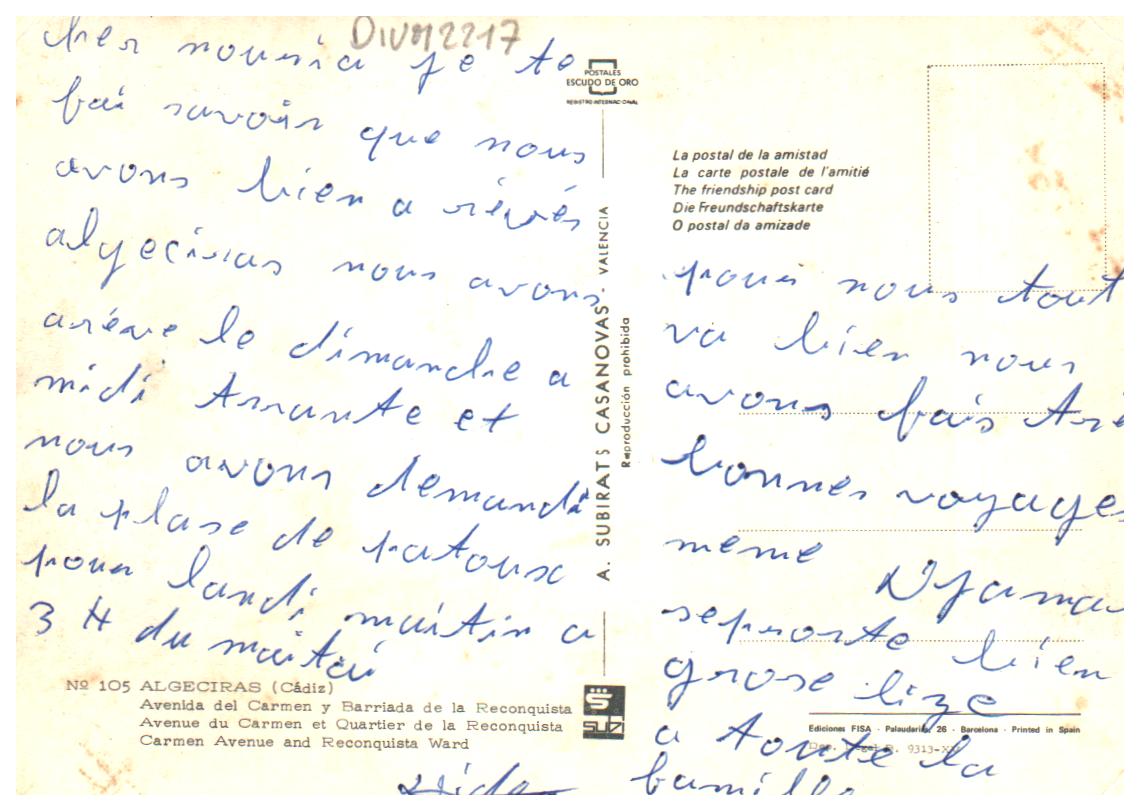 DIVM2217
cher nousria je te
fai savoir que nous
avons bien a rivés
algeciras nous avons
aréve le dimanche a
midi trrante et
nous avons demandé
la plase de batoux
pour landi maitin a
3 H du maitai
Nº 105 ALGECIRAS (Cádiz)
Avenida del Carmen y Barriada de la Reconquista
Avenue du Carmen et Quartier de la Reconquista
Carmen Avenue and Reconquista Ward
POSTALES
ESCUDO DE ORO
REGISTRO INTERNACIONAL
A. SUBIRATS CASANOVAS - VALENCIA
Reproducción prohibida
SUBI
La postal de la amistad
La carte postale de l'amitié
The friendship post card
Die Freundschaftskarte
O postal da amizade
pour nous tout
va bien nous
avons fais tré
bonnes voyages
meme Njama
seporte bien
grose lize
a toute la
famille
Ediciones FISA - Palaudarias, 26 - Barcelona - Printed in Spain
Dep. Legal B. 9313-XV